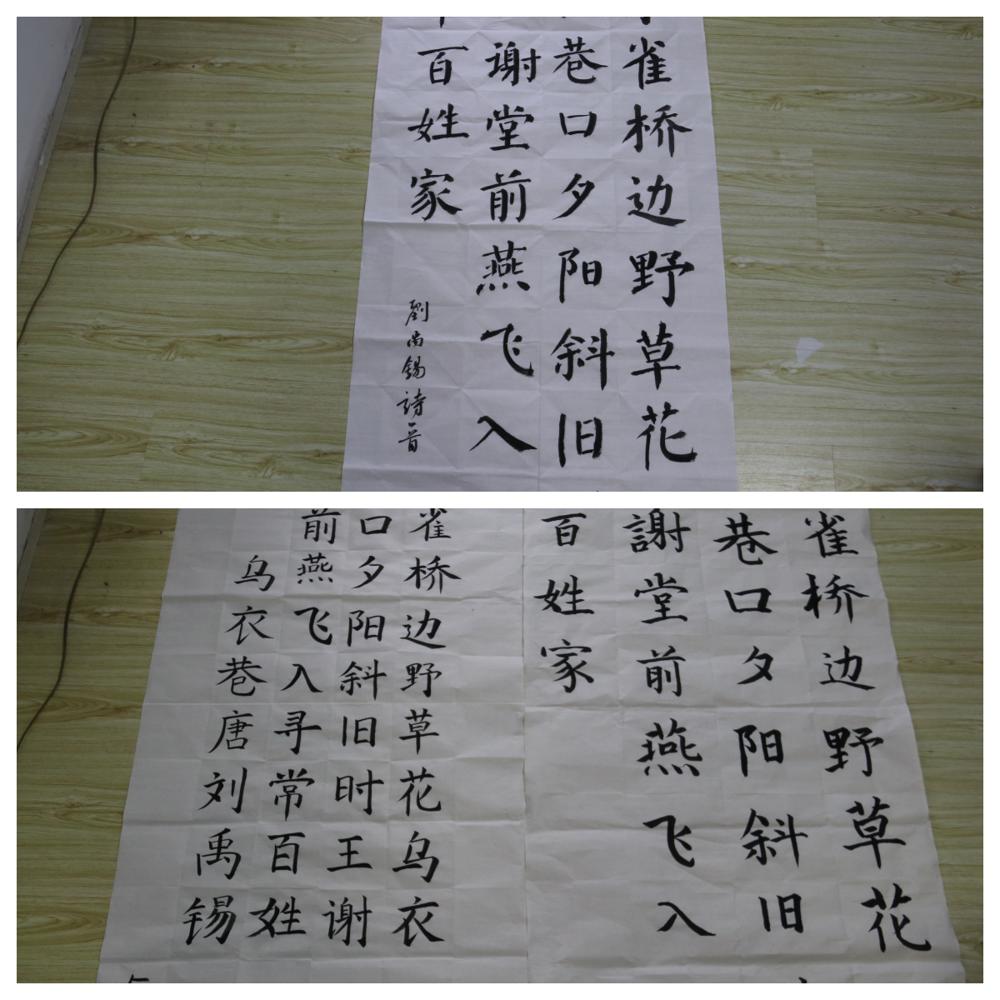 雀桥边野草花
巷口夕阳斜旧
谢堂前燕飞入
百姓家
劉尚錫詩一首
雀桥边野草花
巷口夕阳斜旧
謝堂前燕飞入
百姓家
雀桥边野草花乌衣
口夕阳斜旧时王谢
前燕飞入寻常百姓
乌衣巷唐刘禹锡